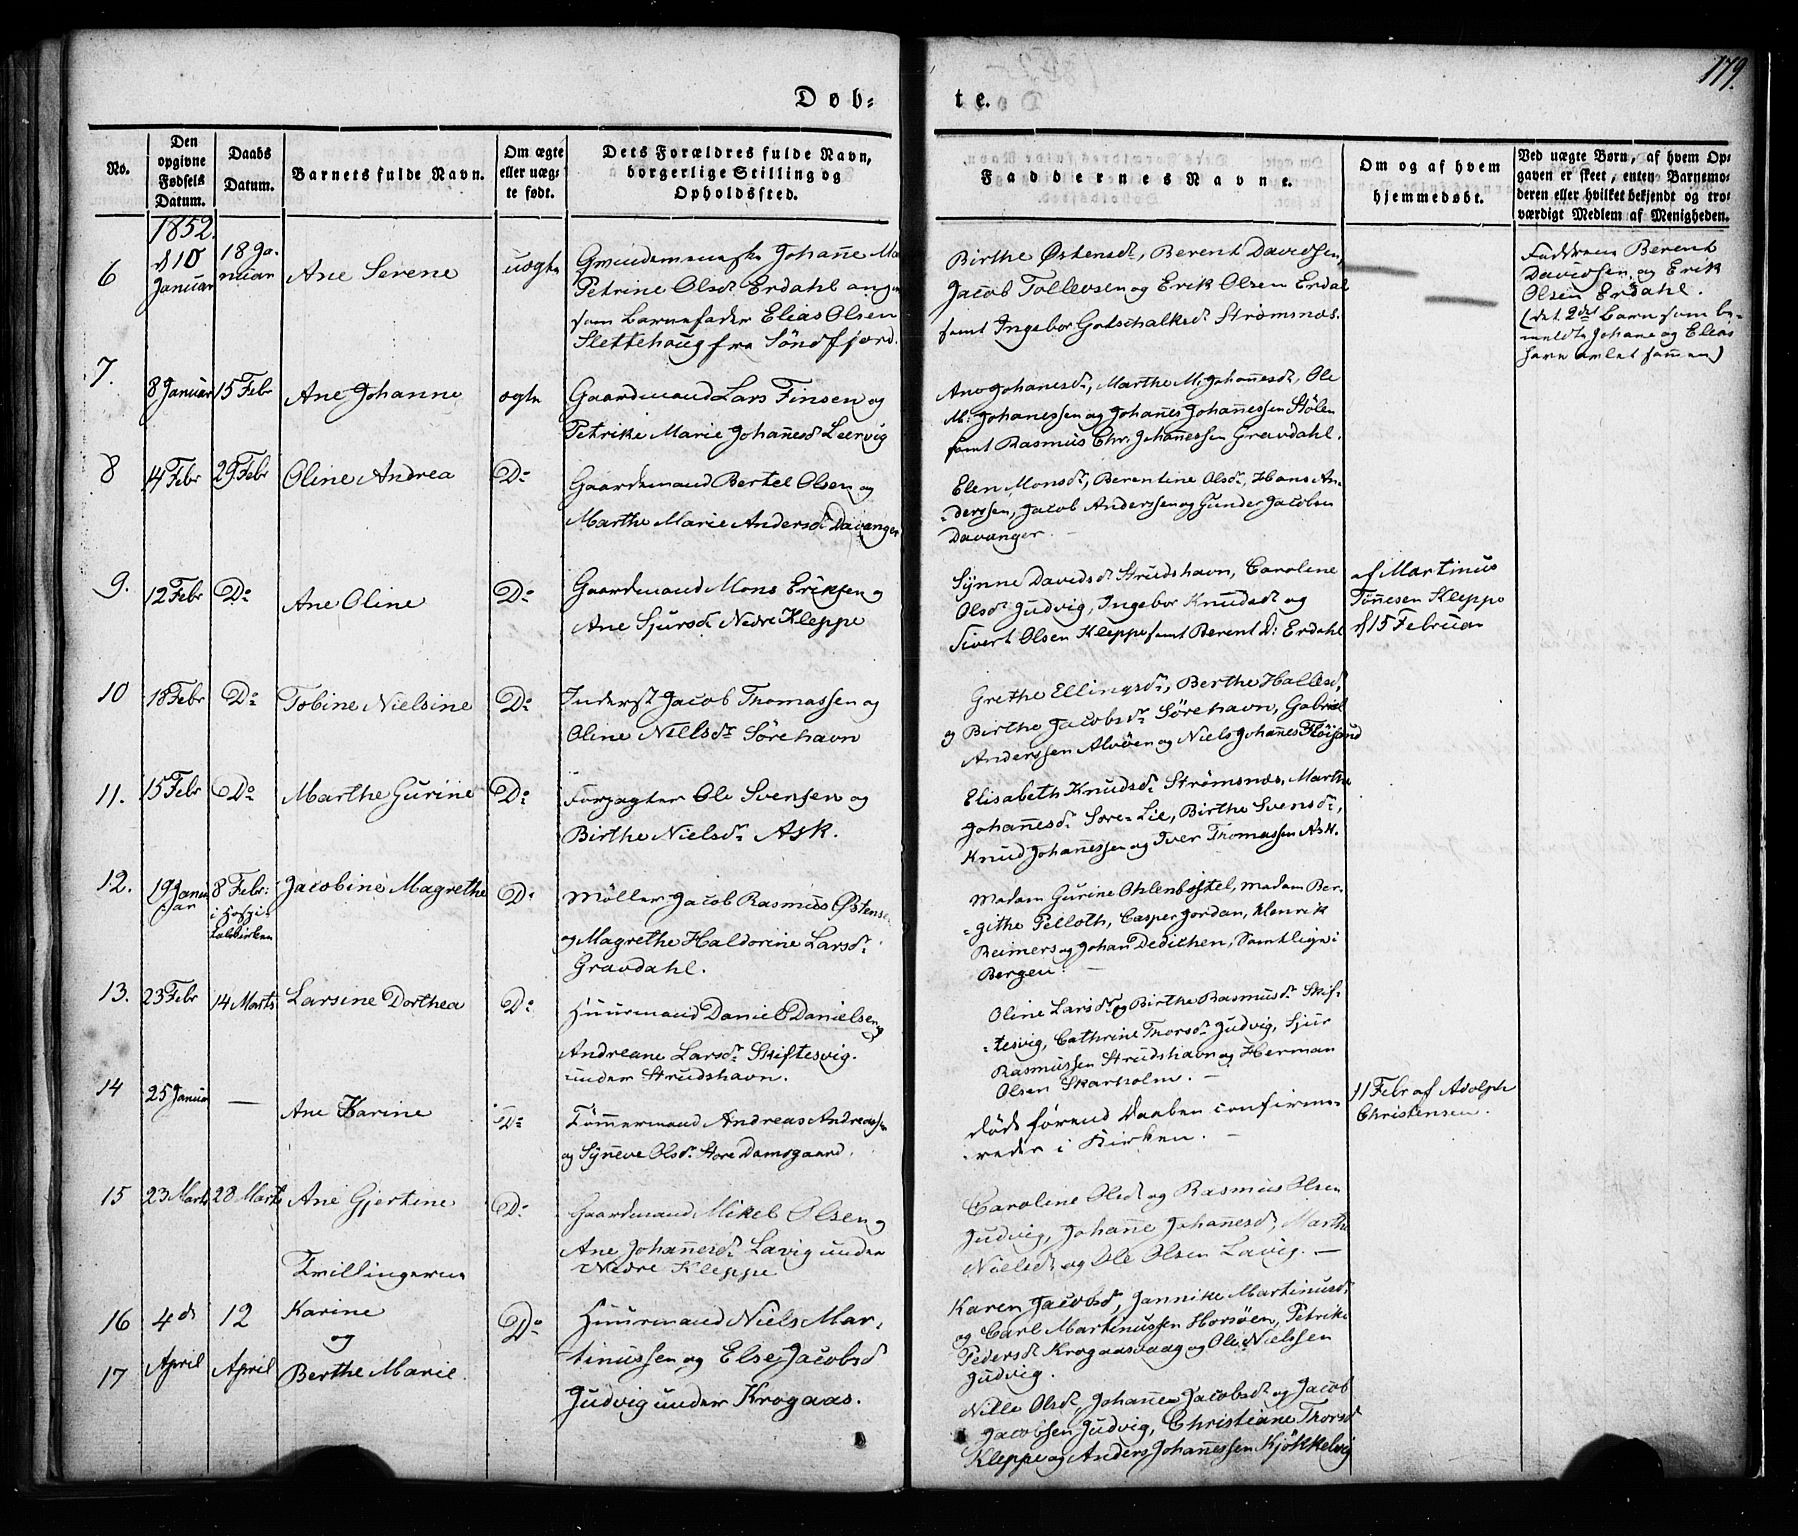 179.
Døb-
te.
No.
Den opgivne Fødsels Datum.
Daabs Datum.
Barnets fulde Navn.
Om ægte eller uægte født.
Dets Forældres fulde Navn, borgerlige Stilling og Opholdssted.
Faddernes Navne.
Om og af hvem hjemmedøbt.
Ved uægte Børn, af hvem Opgaven er skeet, enten Barnemoderen eller hvilket bekjendt og troværdigt Medlem af Menigheden.
1852.
6
d 10 Januar
18 Januar
Ane Serene
uægte
Johanne
Petrine Olsdr Erdahl
som Barnefader Elias Olsen
Slettehoug fra Søndfjord.
Birthe Østensdr, Berent Davidsen,
Jacob Tollevsen og Erik Olsen Erdal
samt Ingebor Gotschalksdr Strømsnæs.
Faddrene Berent
Davidsen og Erik
Olsen Erdahl.
(det 2det Barn som be-
meldte Johane og Elias
have avlet sammen)
7.
8 Januar
15 Febr
Ane Johanne
ægte
Gaardmand Lars Finsen og
Petrike Marie Johañesdr Leervig
Ane Johanesdr, Marthe M. Johañesdr, Ole
M. Johanessen og Johañes Johañessen Stølen
samt Rasmus Chr. Johañessen Gravdahl.
8
14 Febr
29 Febr
Oline Andrea
Do
Gaardmand Bertel Olsen og
Marthe Marie Andersdr Davanger
Elen Monsdr, Berentine Olsdr, Hans An-
derssen, Jacob Anderssen og Gunder Jacobsen
Davanger.
9.
12 Febr
Do
Ane Oline
Do
Gaardmand Mons Eriksen og
Ane Sjursdr Nedre Kleppe
Synne Davidsdr Strudshavn, Caroline
Olsdr Judvig, Ingebor Knudsdr og
Sivert Olsen Kleppe samt Berent D: Erdahl
af Martinus
Tönnesen Kleppe
d 15 Februar
10
18 Febr
Do
Tobine Nielsine
Do
Inderst Jacob Thomassen og
Oline Nilsdr Sörehavn
Grethe Ellingsdr, Berthe Hallesdr
og Birthe Jacobsdr Sörehavn, Gabriel
Anderssen Alvöen og Niels Johannes Flöisand
11.
15 Febr
Do
Marthe Gurine
Do
Forpagter Ole Svensen og
Birthe Nielsdr Ask.
Elisabeth Knudsdr Strömsnæs, Marthe
Johañesdr Søre-Lie, Birthe Svensdr,
Knud Johañessen og Iver Thomassen Ask.
12.
19 Januar
8 Febr:
i Hospi-
talskirken
Jacobine Magrethe
Do
Møller Jacob Rasmus Østens
og Magrethe Haldorine Larsdr
Gravdahl.
Madam Gurine Ohlenbostel, madam Ber-
githe Pelloth, Casper Jordan, Henrik
Reimers og Johan Dedichen, Samtlige i
Bergen.
13.
23 Febr
14 Marts
Larsine Dorthea
Do
Huurmand Daniel Danielsen og
Andreane Larsdr Skiftesvig.
under Strudshavn.
Oline Larsdr og Birthe Rasmusdr Skif-
tesvig, Cathrine Thorsdr Judvig, Sjur
Rasmussen Strudshavn og Herman
Olsen Skarholm.
14
25 Januar
—
Ane Karine
Do
Tømmermand Andreas Andreassen
og Syneve Olsdr Store Damsgaard.
død förend Daaben confirme-
redes i Kirken.
11 Febr af Adolph
Christensen.
15
23 Marts
28 Marts
Ane Gjertine
Do
Gaardmand Mikel Olsen og
Ane Johañesdr Lavig under
Nedre Kleppe
Caroline Olsdr og Rasmus Olsen
Judvig, Johañe Johañesdr, Marthe
Nielsdr og Ole Olsen Lavig. —
Tvillingerne
16
4de
12
Karine
og
Do
Huurmand Niels Mar-
tinussen og Else Jacobsdr
Judvig under Krogaas.
Karen Jacobsdr, Jannike Martinusdr
og Carl Martinussen Horsöen, Petrike
Pedersdr Krogaasvaag og Ole Nielssen
Judvig.
17
April
April
Berthe Marie.
Nille Olsdr, Johañe Jacobsdr og Jacob
Jacobsen Judvig, Christiane Thorsdr
Kleppe og Anders Johañessen Kjökkelvig